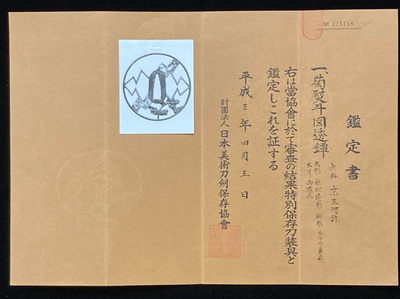 № 221118
鑑定書
一、菊熨斗図透鐔
右は當協會に於て審査の結果特別保存刀装具と
鑑定しこれを証する
平成三年四月五日
財團法人日本美術刀剣保存協會